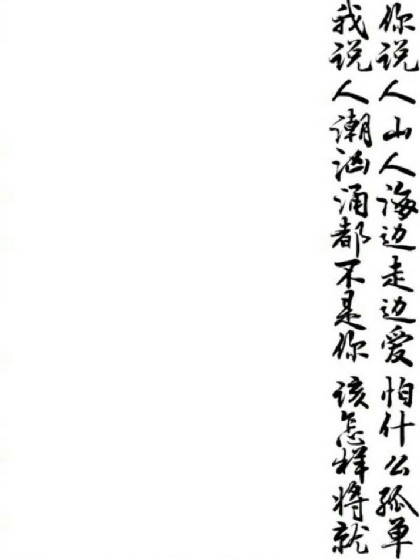 你说人山人海边走边爱 怕什么孤单
我说人潮汹涌都不是你 该怎样将就